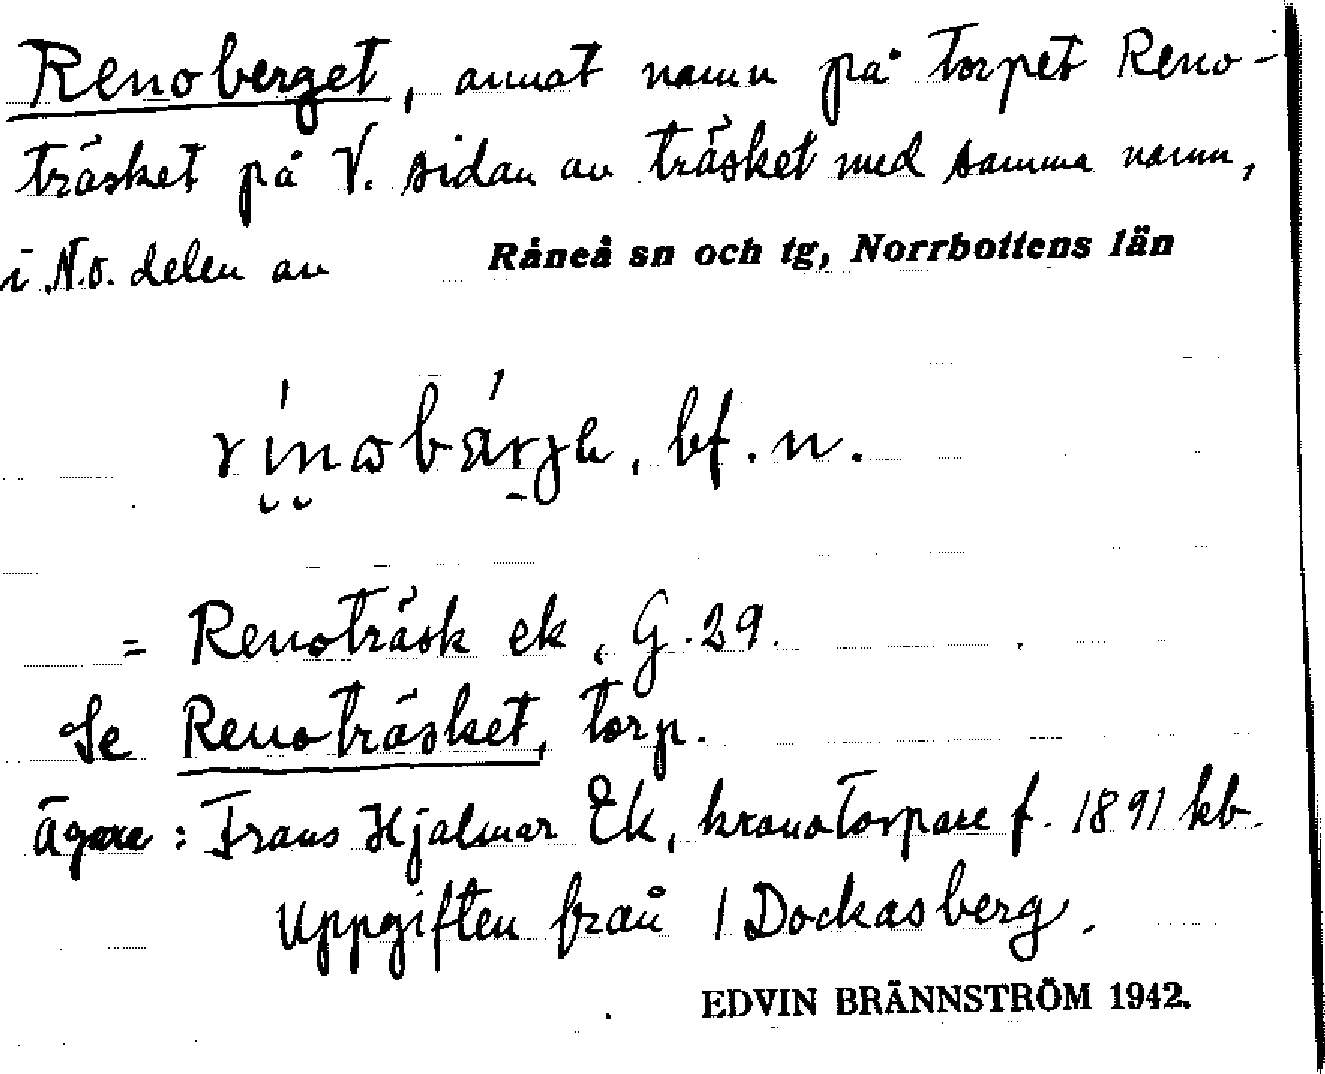 Renoberget, annat namn på torpet Reno-
träsket på V. sidan av träsket med samma namn,
i N.o. delen av Råneå sn och tg, Norrbottens län
bf. n.
= Renoträsk ek, G. 29.
Se Renoträsket, torp.
Ägare: Frans Hjalmar Ek, kronotorpare f. 1891 kb.
Uppgiften från 1 Dockasberg.
EDVIN BRÄNNSTRÖM 1942.